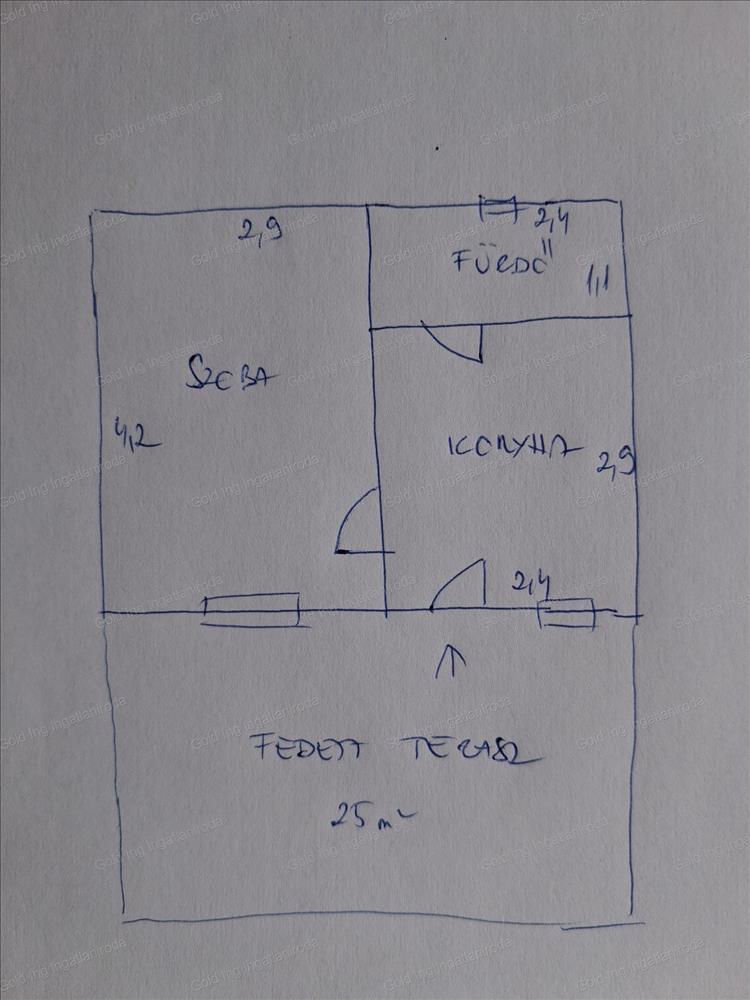 2,9
2,4
FÜRDŐ
1,1
SZOBA
4,2
KONYHA
2,9
2,4
FEDETT TERASZ
25 m²
Gold Ing Ingatlaniroda